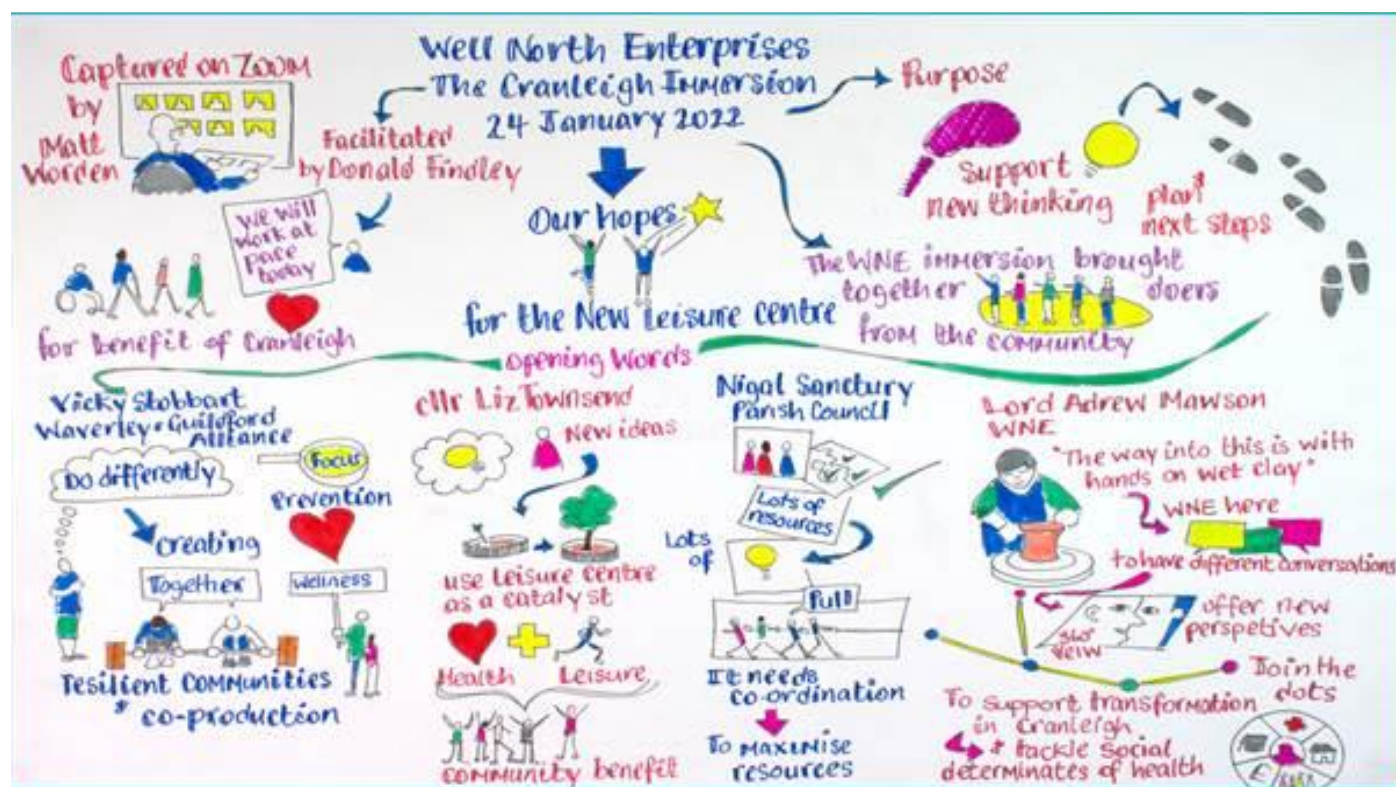 Well North Enterprises
The Cranleigh Immersion
24 January 2022
Captured on Zoom
by
Matt
Worden
Facilitated
by Donald Findley
We will
work at
pace
today
for benefit of Cranleigh
Our hopes
for the New Leisure centre
Purpose
Support
new thinking
plan &
next steps
The WNE immersion brought
together doers
from the community
opening words
Vicky Stobbart
Waverley & Guildford
Alliance
Do differently
Focus
Prevention
creating
Together
wellness
resilient communities
& co-production
cllr Liz Townsend
New ideas
use Leisure centre
as a catalyst
Health Leisure
community benefit
Nigal Sanctury
Parish Council
Lots of
resources
Lots
of
Pull
It needs
co-ordination
To maximise
resources
Lord Adrew Mawson
WNE
"The way into this is with
hands on wet clay"
WNE here
to have different conversations
offer new
perspetives
Join the
dots
To support transformation
in Cranleigh
& tackle social
determinates of health